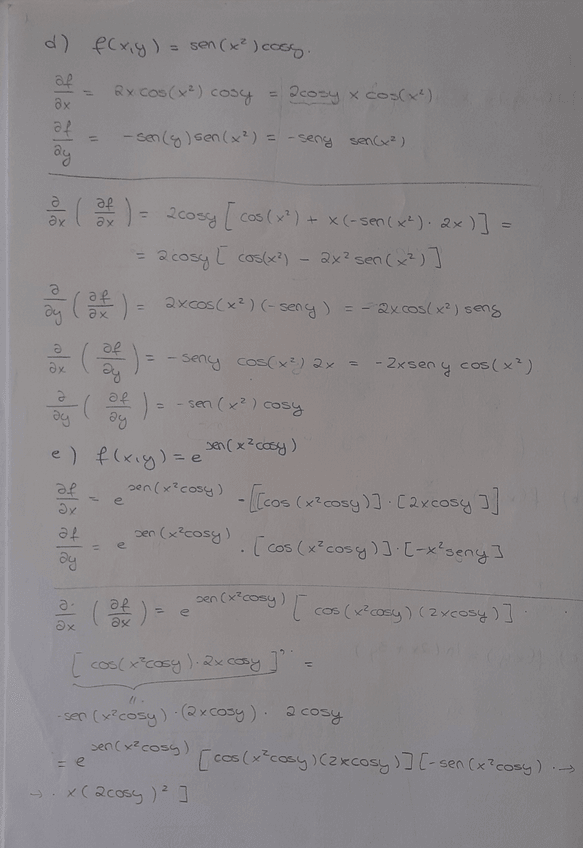 d) f(x,y) = sen(x²)cosy.
∂f/∂x = 2x cos(x²) cosy = 2cosy x cos(x²)
∂f/∂y = -sen(y)sen(x²) = -seny sen(x²)
∂/∂x (∂f/∂x) = 2cosy [cos(x²) + x(-sen(x²)·2x)] =
= 2cosy [cos(x²) - 2x² sen(x²)]
∂/∂y (∂f/∂x) = 2xcos(x²)(-seny) = -2xcos(x²) seny
∂/∂x (∂f/∂y) = -seny cos(x²) 2x = -2xseny cos(x²)
∂/∂y (∂f/∂y) = -sen(x²) cosy
e) f(x,y) = e^sen(x²cosy)
∂f/∂x = e^sen(x²cosy) ·[[cos(x²cosy)]·[2xcosy]]
∂f/∂y = e^sen(x²cosy) · [cos(x²cosy)]·[-x²seny]
∂/∂x (∂f/∂x) = e^sen(x²cosy) [cos(x²cosy)(2xcosy)]
[cos(x²cosy)·2xcosy]' =
-sen(x²cosy)·(2xcosy)· 2cosy
= e^sen(x²cosy) [cos(x²cosy)(2xcosy)][-sen(x²cosy) · →
→ · x(2cosy)²]